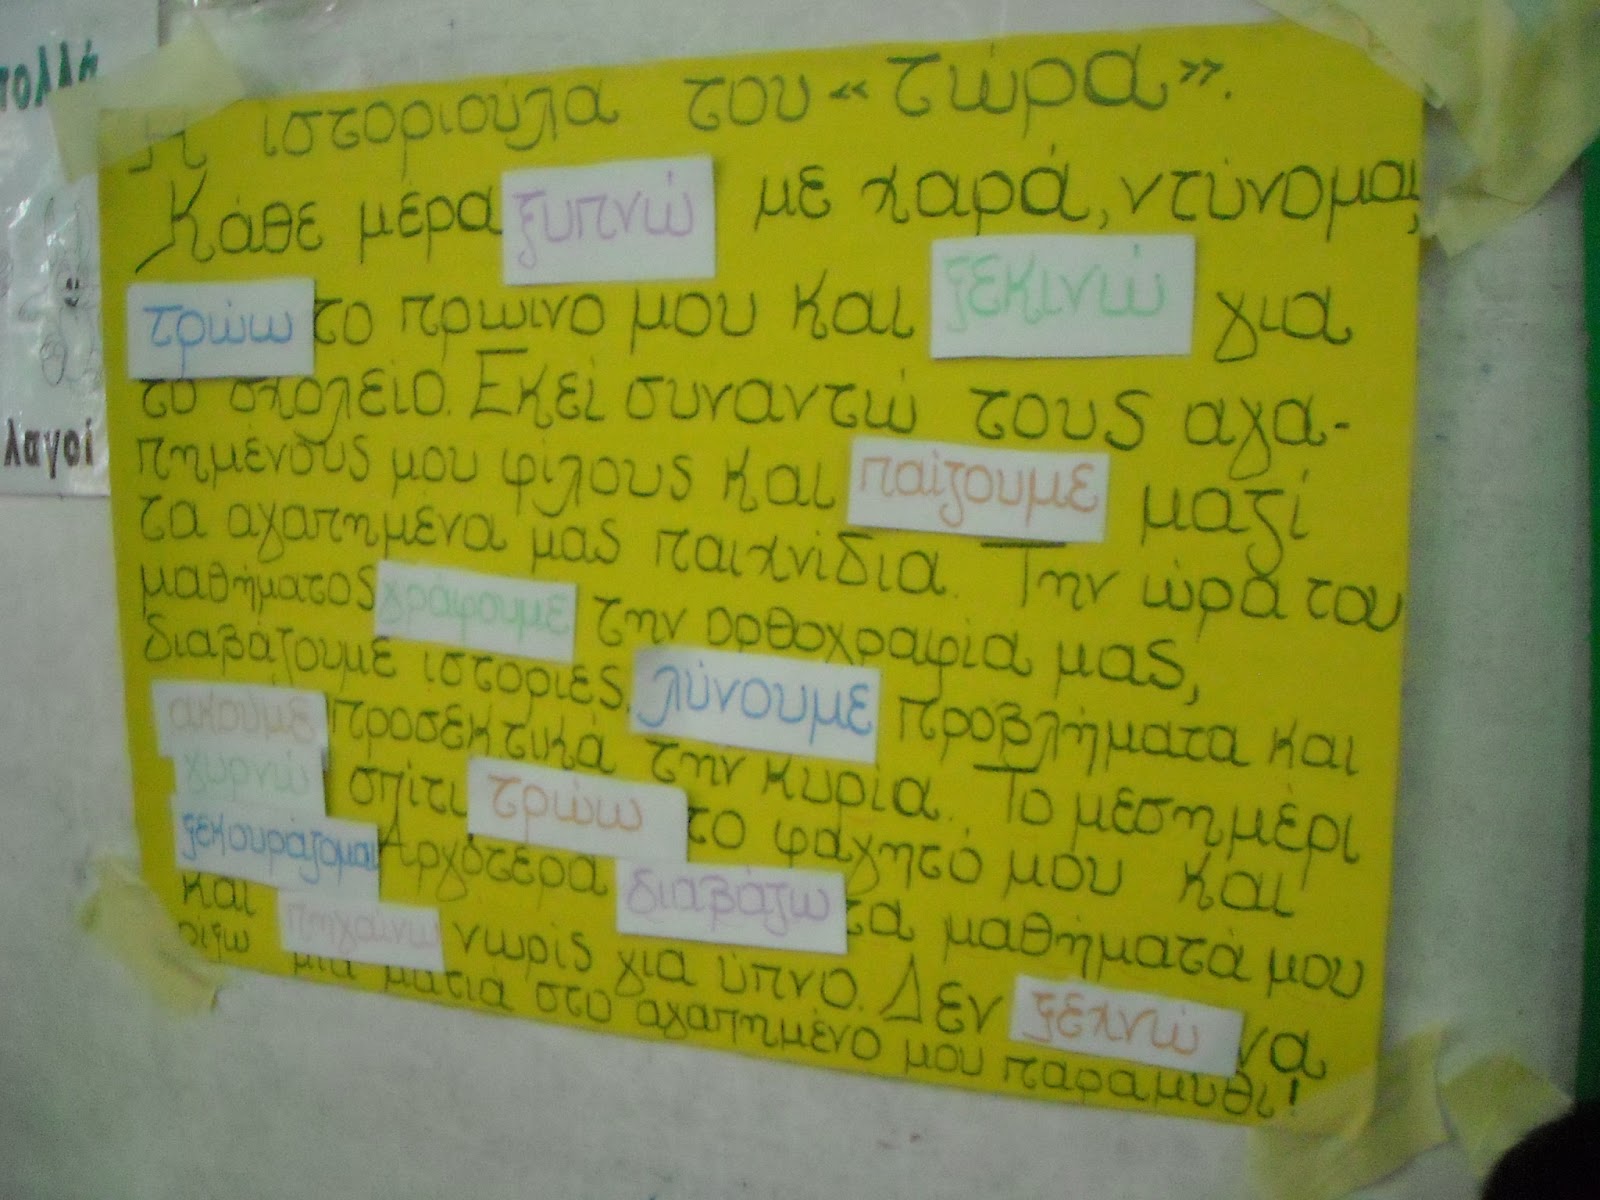 πολλά
λαγοί
Η ιστοριούλα του «τώρα».
Κάθε μέρα ξυπνώ με χαρά, ντύνομαι,
τρώω το πρωινο μου και ξεκινώ για
το σχολείο. Εκεί συναντώ τους αγα-
πημένους μου φίλους και παίζουμε μαζί
τα αγαπημένα μας παιχνίδια. Την ώρα του
μαθήματος γράφουμε την ορθογραφία μας,
διαβάζουμε ιστορίες, λύνουμε προβλήματα και
ακούμε προσεκτικά την κυρία. Το μεσημέρι
γυρνώ σπίτι τρώω το φαγητό μου και
ξεκουράζομαι Αργότερα διαβάζω τα μαθήματά μου
και πηγαίνω νωρίς για ύπνο. Δεν ξεχνώ να
ρίξω μια ματιά στο αγαπημένο μου παραμύθι!